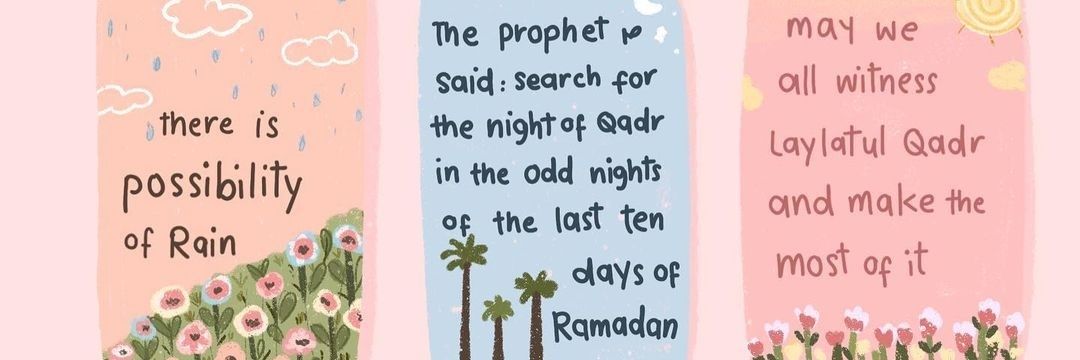 there is
possibility
of Rain
The prophet ﷺ
said: search for
the night of Qadr
in the odd nights
of the last ten
days of
Ramadan
may we
all witness
Laylatul Qadr
and make the
most of it